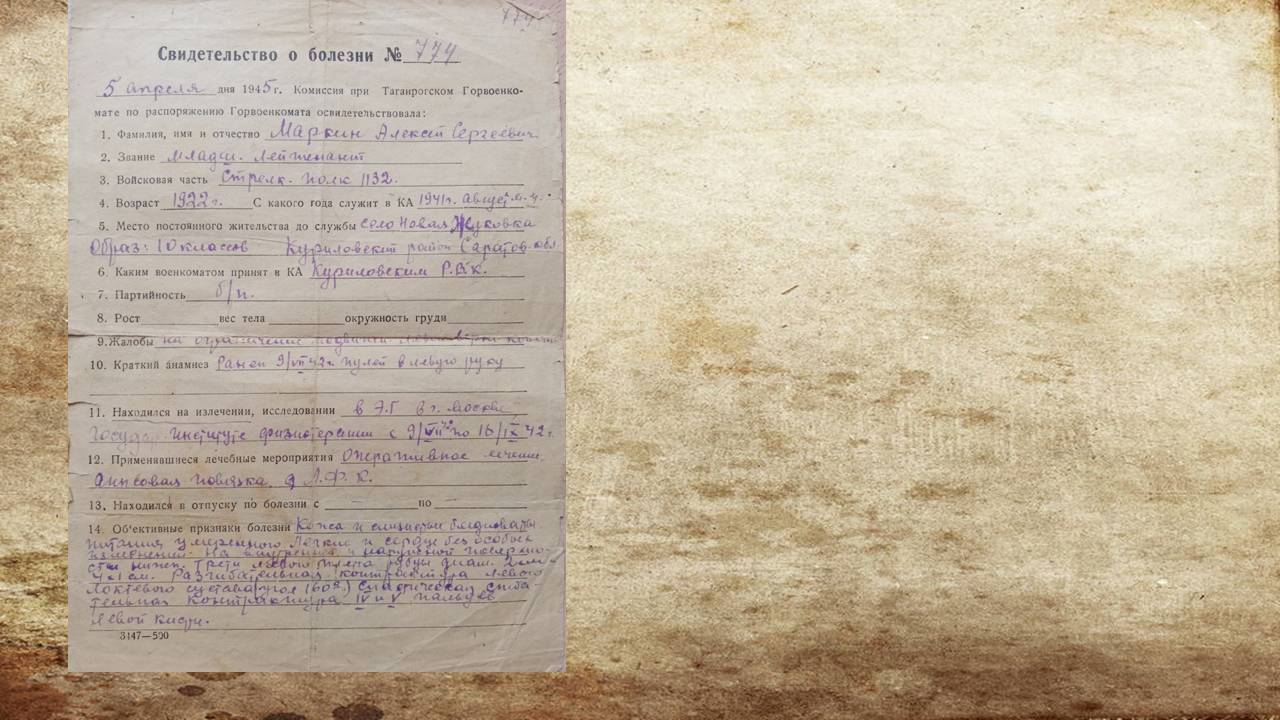 774
Свидетельство о болезни № 774
5 апреля дня 1945 г. Комиссия при Таганрогском Горвоенко-
мате по распоряжению Горвоенкомата освидетельствовала:
1. Фамилия, имя и отчество Маркин Алексей Сергеевич
2. Звание младш. лейтенант
3. Войсковая часть Стрелк. полк 1132.
4. Возраст 1922 г. С какого года служит в КА 1941 г. август м-ц.
5. Место постоянного жительства до службы село Новая Жуковка
Образ: 10 классов Куриловский район Саратов. обл.
6. Каким военкоматом принят в КА Куриловским Р.В.К.
7. Партийность б/п.
8. Рост вес тела окружность груди
9. Жалобы на ограничение
10. Краткий анамнез Ранен 9/VII 42 г. пулей в левую руку
11. Находился на излечении, исследовании в Э.Г в г. Москве
Государ. Институте физиотерапии с 9/VII 42 по 16/IX 42 г.
12. Применявшиеся лечебные мероприятия Оперативное лечение,
гипсовая повязка, Л.Ф.К.
13. Находился в отпуску по болезни с по
14. Об'ективные признаки болезни Кожа и слизистые бледноваты.
питания умеренного Легкие и сердце без особых
изменений. На внутренней и наружной поверхно-
сти нижн. трети левого плеча рубцы
4х1 см. Разгибательная контрактура левого
локтевого сустава (угол 160°)
контрактура IV и V пальцев
левой кисти.
3147—500